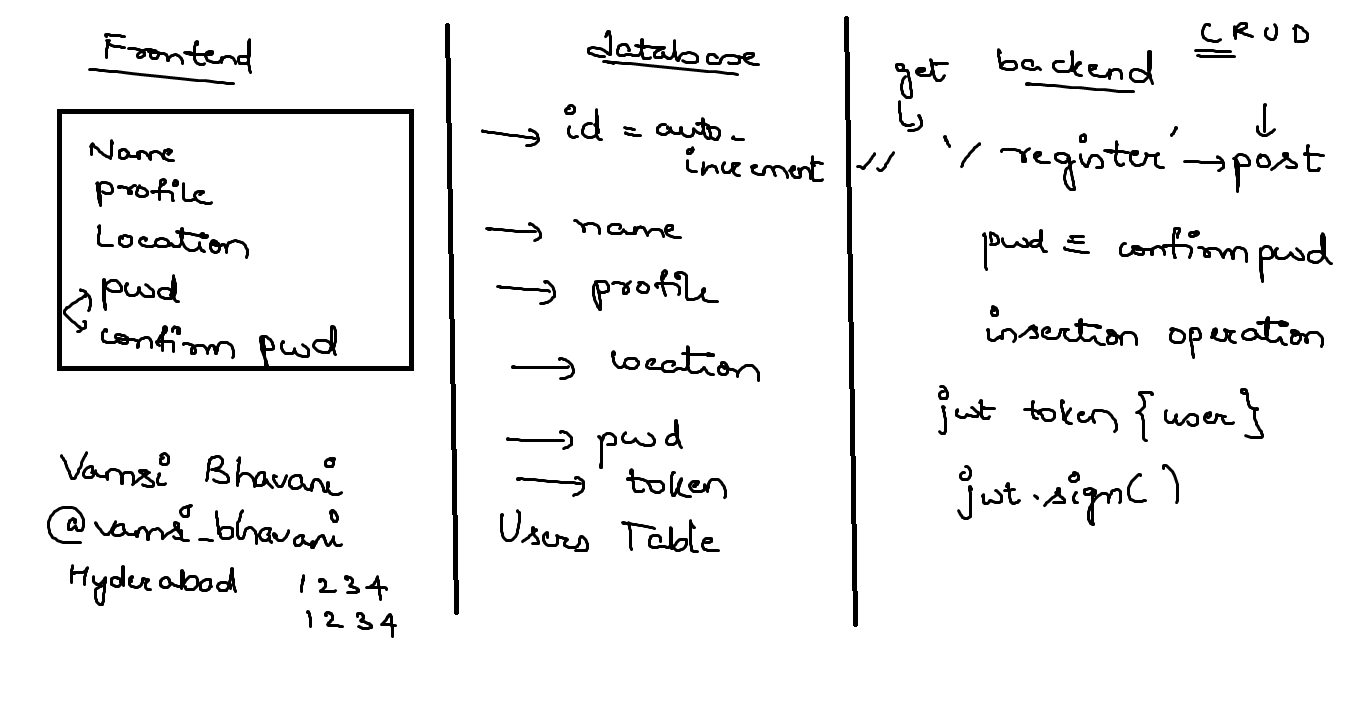 Frontend
Name
profile
Location
pwd
confirm pwd
Vamsi Bhavani
@vamsi_bhavani
Hyderabad 1234
1234
database
→ id = auto-
increment
→ name
→ profile
→ location
→ pwd
→ token
Users Table
CRUD
get backend
// '/register' → post
pwd = confirm pwd
insertion operation
jwt token {user}
jwt.sign()